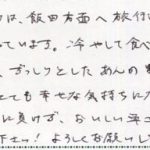 は、飯田方面へ旅行
ています。冷やして食べ
、ずっしりとしたあんの
とても幸せな気持ちに
に負けず、おいしい
下さい!よろしくお願いし